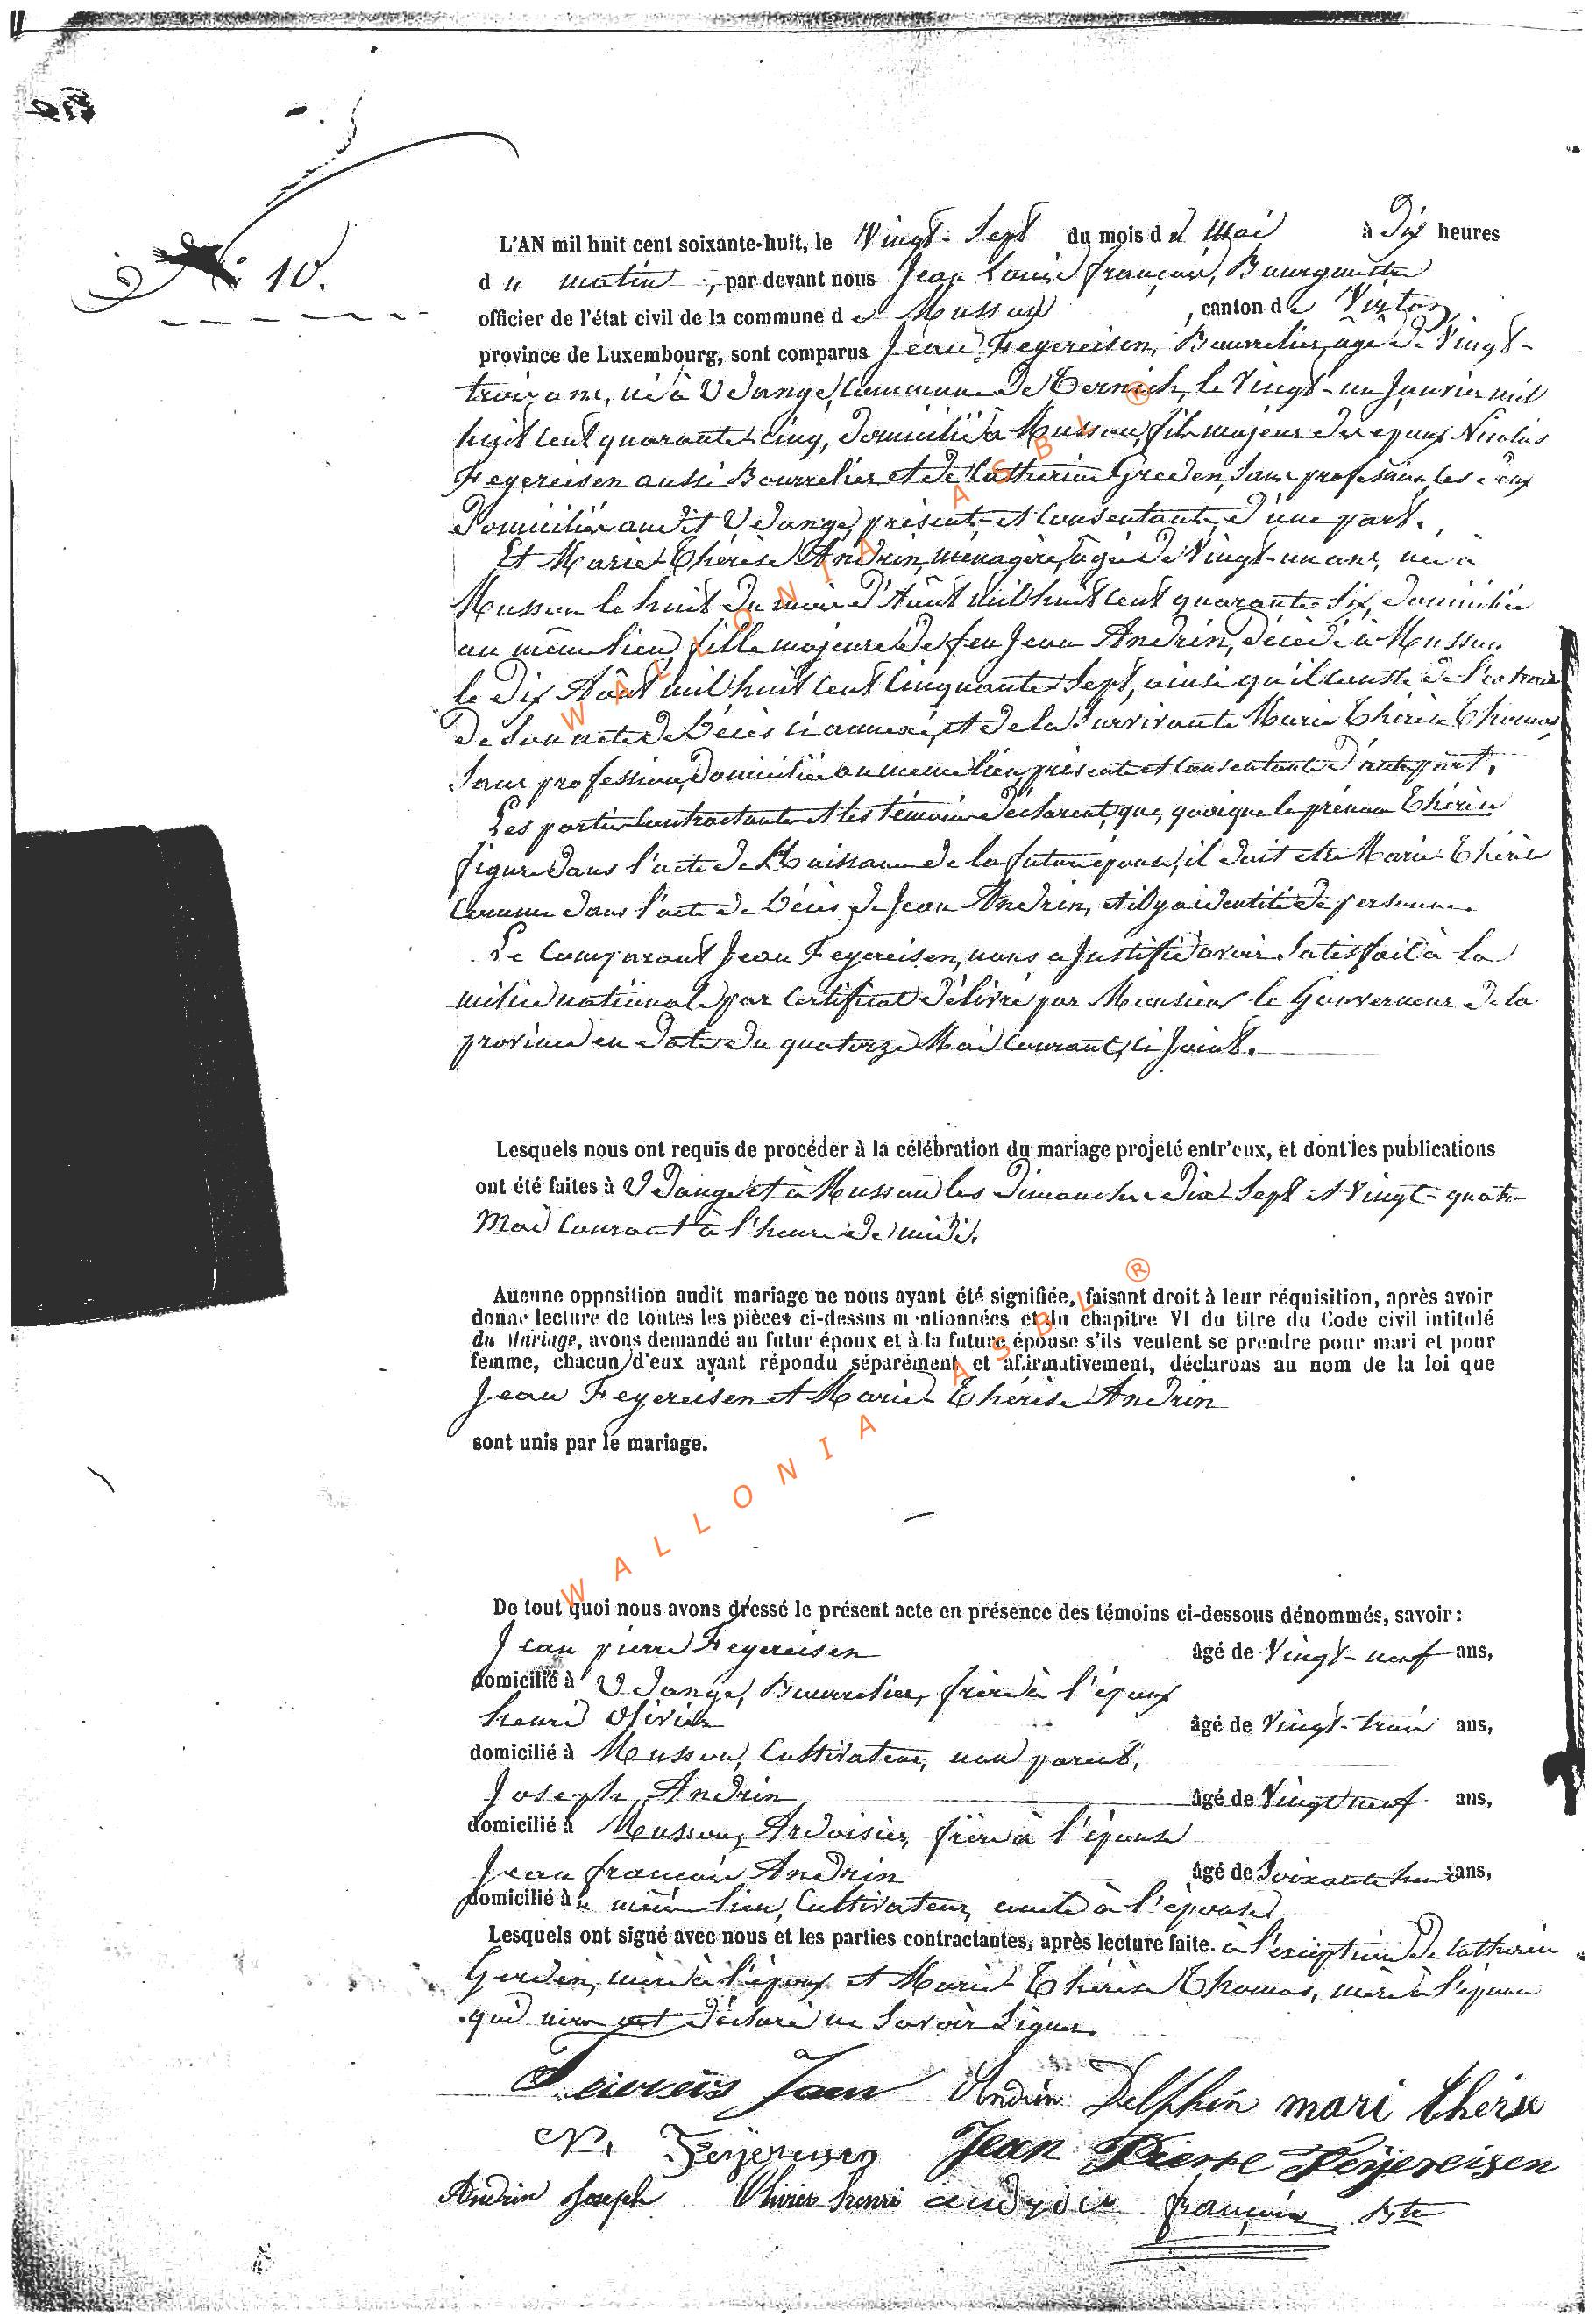 N° 10.
L'AN mil huit cent soixante-huit, le Vingt-Sept du mois de Mai à Dix heures
du matin, par devant nous Jean Louis françois, Bourgmestre
officier de l'état civil de la commune de Musson, canton de Virton,
province de Luxembourg, sont comparus Jean Feyereisen, Bourrelier, âgé de Vingt-
trois ans, né à Udange, commune de Ternich, le Vingt-un Janvier mil
huit cent quarante-cinq, domicilié à Musson, fils majeur des epoux Nicolas
Feyereisen aussi Bourrelier et de Catherine Greden, sans profession, les deux
domiciliés audit Udange, présents et consentants, d'une part.
Et Marie-Thérèse Andrin, ménagère, âgée de Vingt-un ans, née à
Musson le huit du mois d'Août mil huit cent quarante Six, domiciliée
au même lieu, fille majeure de feu Jean Andrin, décédé à Musson
le Dix Août mil huit cent Cinquante-Sept, ainsi qu'il conste de l'extrait
de son acte de Décès ci annexé, et de la Survivante Marie Thérèse Thomas,
sans profession, domiciliée au même lieu, présente et consentante d'autre part.
Les parties contractantes et les témoins déclarent, que, quoique le prénom Thérèse
figure dans l'acte de Naissance de la future épouse, il doit etre Marie-Thérèse
Comme dans l'acte de Décès de Jean Andrin, et il y a identité de personne.
Le Comparant Jean Feyereisen, nous a Justifié avoir Satisfait à la
milice nationale par Certificat délivré par Monsieur le Gouverneur de la
province en date du quatorze Mai Courant, ci Joint.
Lesquels nous ont requis de procéder à la célébration du mariage projeté entr'eux, et dont les publications
ont été faites à Udange et à Musson les Dimanches Dix-Sept et Vingt-quatre
Mai Courant à l'heure de midi.
Aucune opposition audit mariage ne nous ayant été signifiée, faisant droit à leur réquisition, après avoir
donné lecture de toutes les pièces ci-dessus mentionnées et du chapitre VI du titre du Code civil intitulé
du Mariage, avons demandé au futur époux et à la future épouse s'ils veulent se prendre pour mari et pour
femme, chacun d'eux ayant répondu séparément et affirmativement, déclarons au nom de la loi que
Jean Feyereisen et Marie-Thérèse Andrin
sont unis par le mariage.
De tout quoi nous avons dressé le présent acte en présence des témoins ci-dessous dénommés, savoir:
Jean pierre Feyereisen âgé de Vingt-neuf ans,
domicilié à Udange, Bourrelier, frère à l'époux
henri Olivier âgé de Vingt-trois ans,
domicilié à Musson, Cultivateur, non parent,
Joseph Andrin âgé de Vingt neuf ans,
domicilié à Musson, Ardoisier, frère à l'épouse
Jean françois Andrin âgé de Soixante huit ans,
domicilié à même lieu, Cultivateur, oncle à l'épouse
Lesquels ont signé avec nous et les parties contractantes, après lecture faite. à l'exception de Catherine
Greden, mère à l'époux et Marie-Thérèse Thomas, mère à l'épouse
qui nous ont déclaré ne Savoir Signer.
Jean Andrin Delphin mari thérse
N. Feyereisen Jean Pierre Feyereisen
Andrin Joseph Olivier henri françois Btre
WALLONIA ASBL ®
WALLONIA ASBL ®